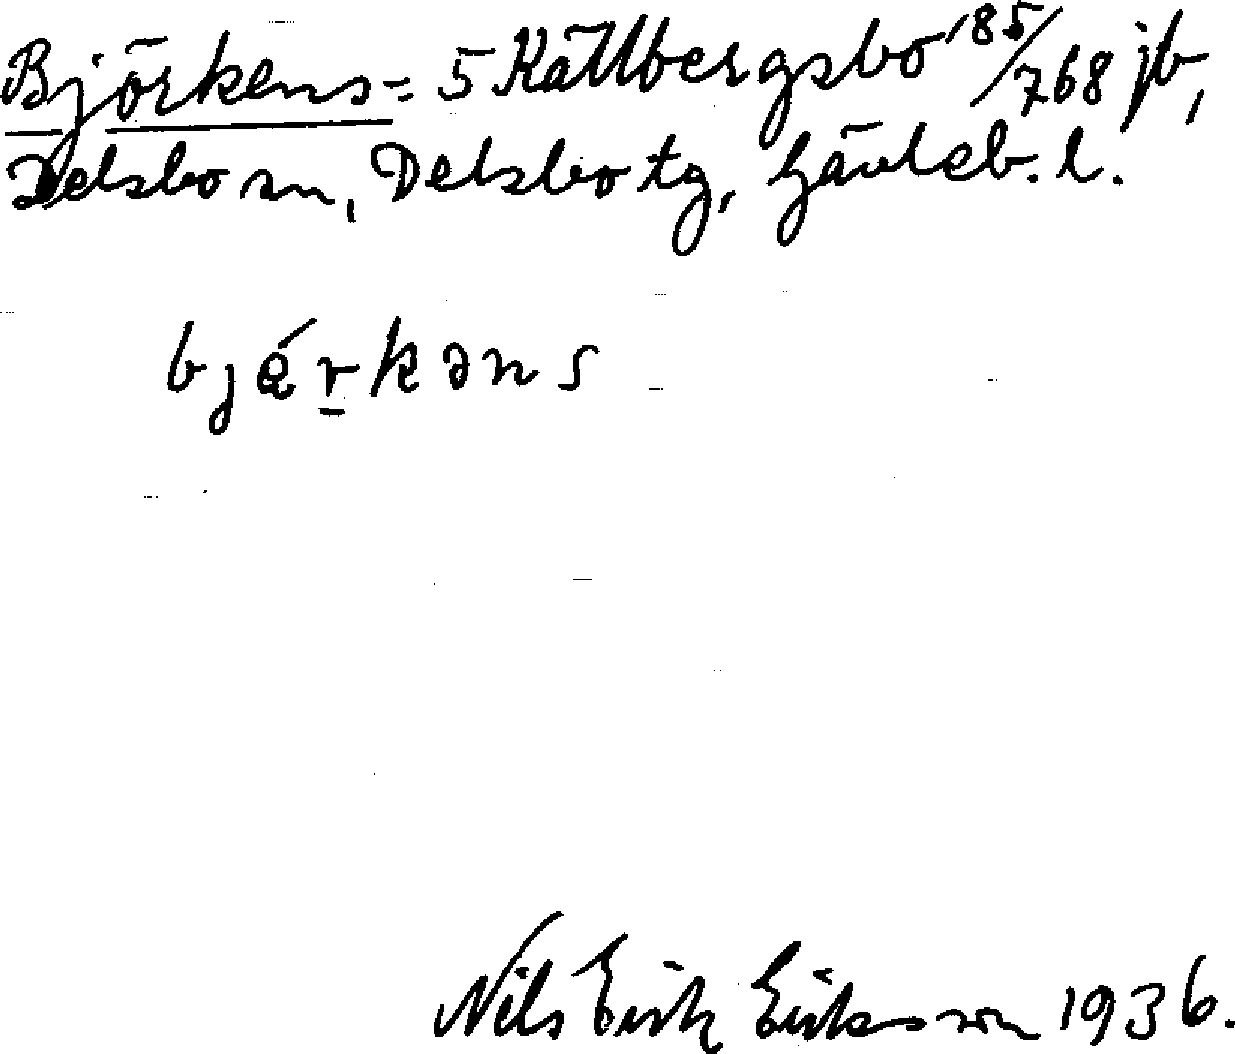 Björkens = 5 Källbergsbo 185/768 jb,
Delsbo sn, Delsbo tg, Gävleb. l.
bjǿr̲kəns
Nils Erik Eriksson 1936.